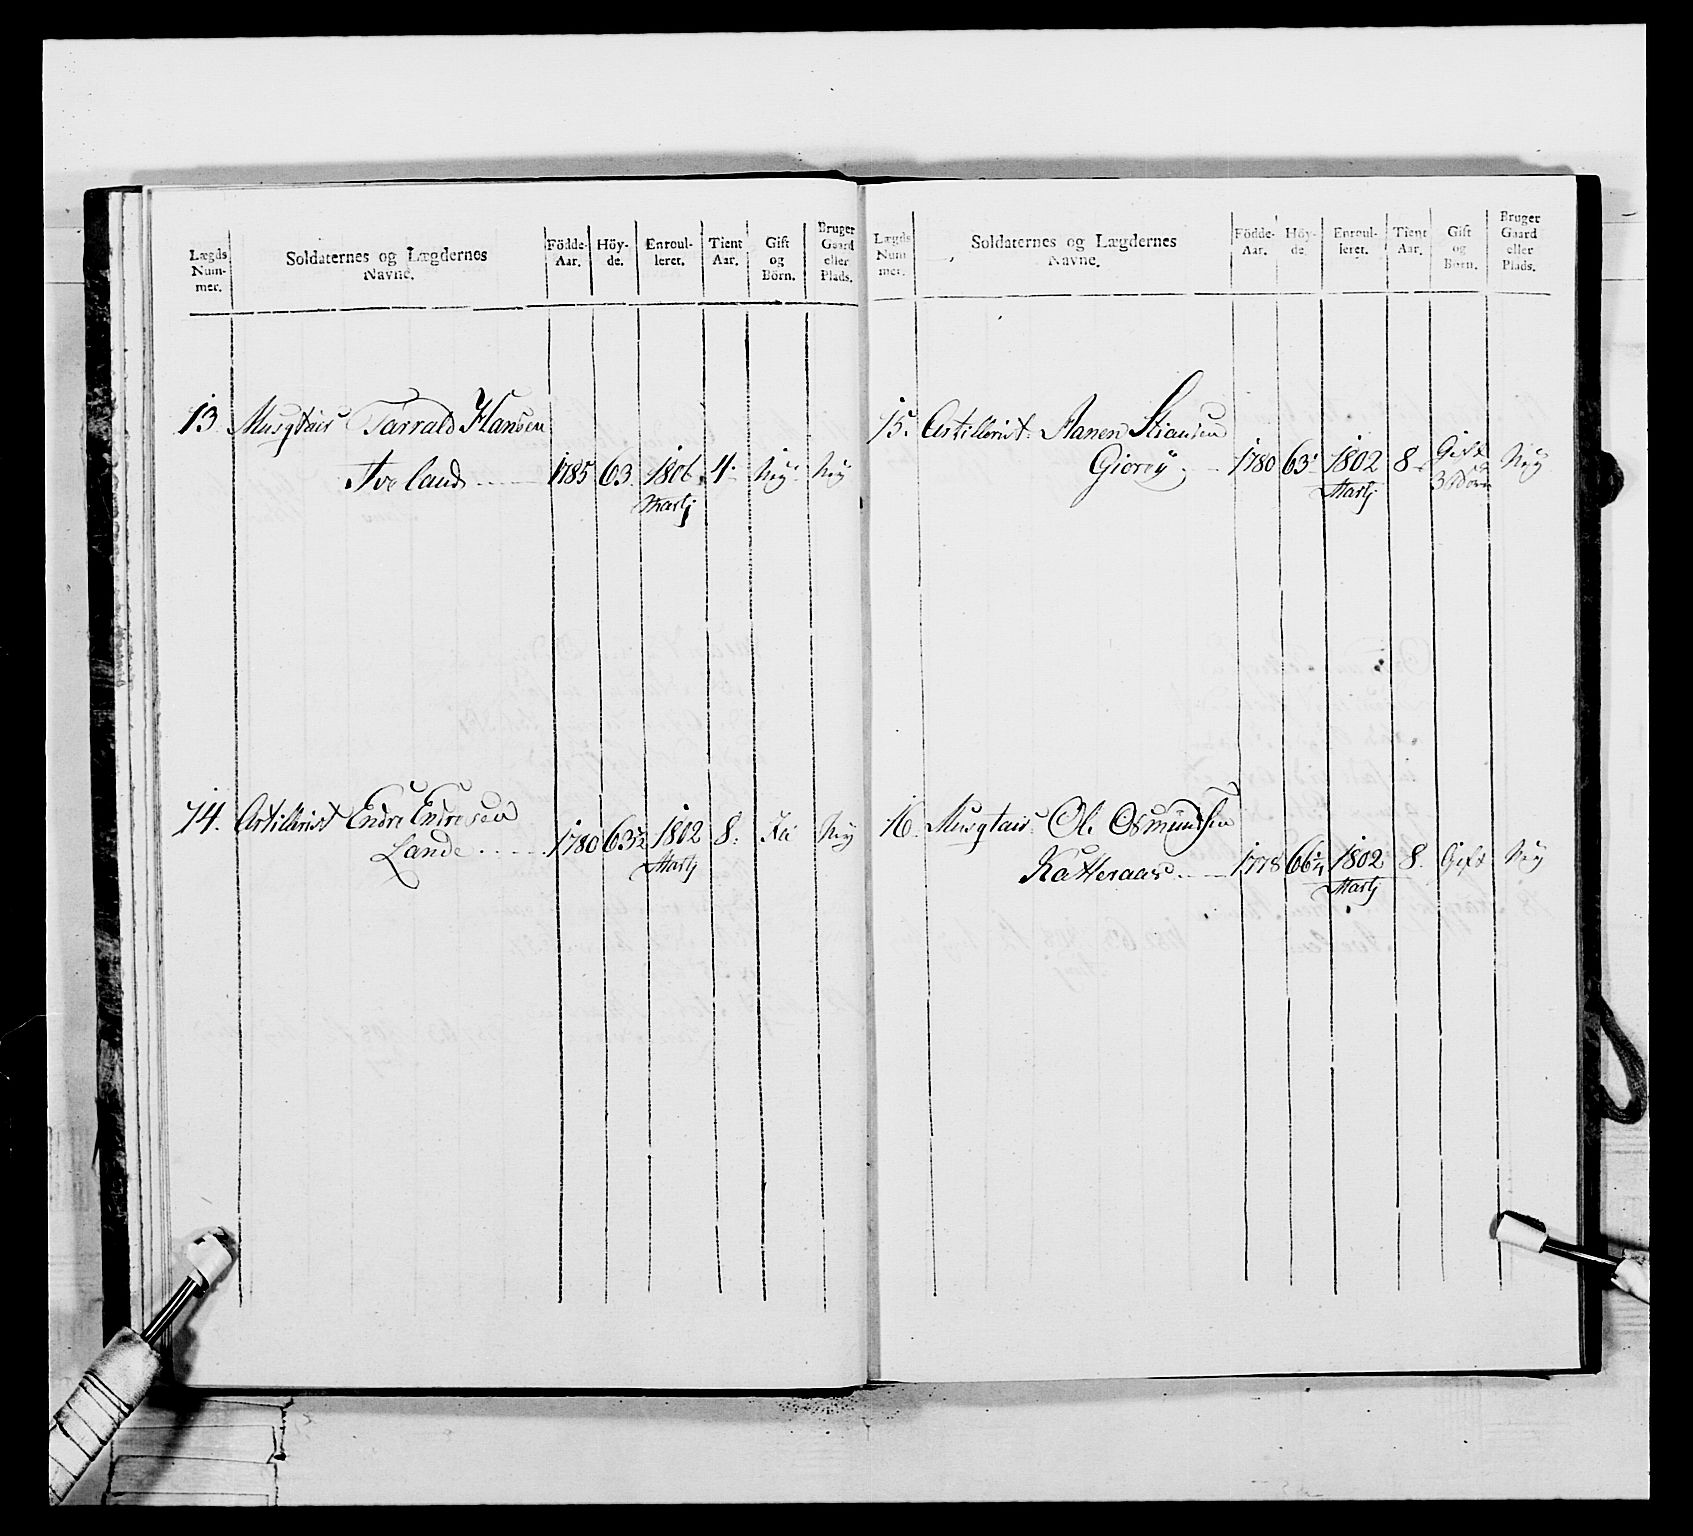 Lægds Num- mer.
Soldaternes og Lægdernes Navne.
Födde- Aar.
Höy- de.
Enroul- leret.
Tient Aar.
Gift og Börn.
Bruger Gaard eller Plads.
13 Musqtair Tarrald Hansen
Aveland 1785 63 1806 4 Nÿ Nÿ
Martj
14. Artillerist Endre Endresen
Lande 1780 63½ 1802 8.
Nÿ
Martj
Lægds Num- mer.
Soldaternes og Lægdernes Navne.
Födde- Aar.
Höy- de.
Enroul- leret.
Tient Aar.
Gift og Börn.
Bruger Gaard eller Plads.
15. Artillerist Aanen Stiansen
1780 63 1802 8 Gift 3 Börn Nÿ
Martj
16. Musqtair Ole Osmundsen
Katteraas 1778 66¼ 1802 8. Gift Nÿ
Martj